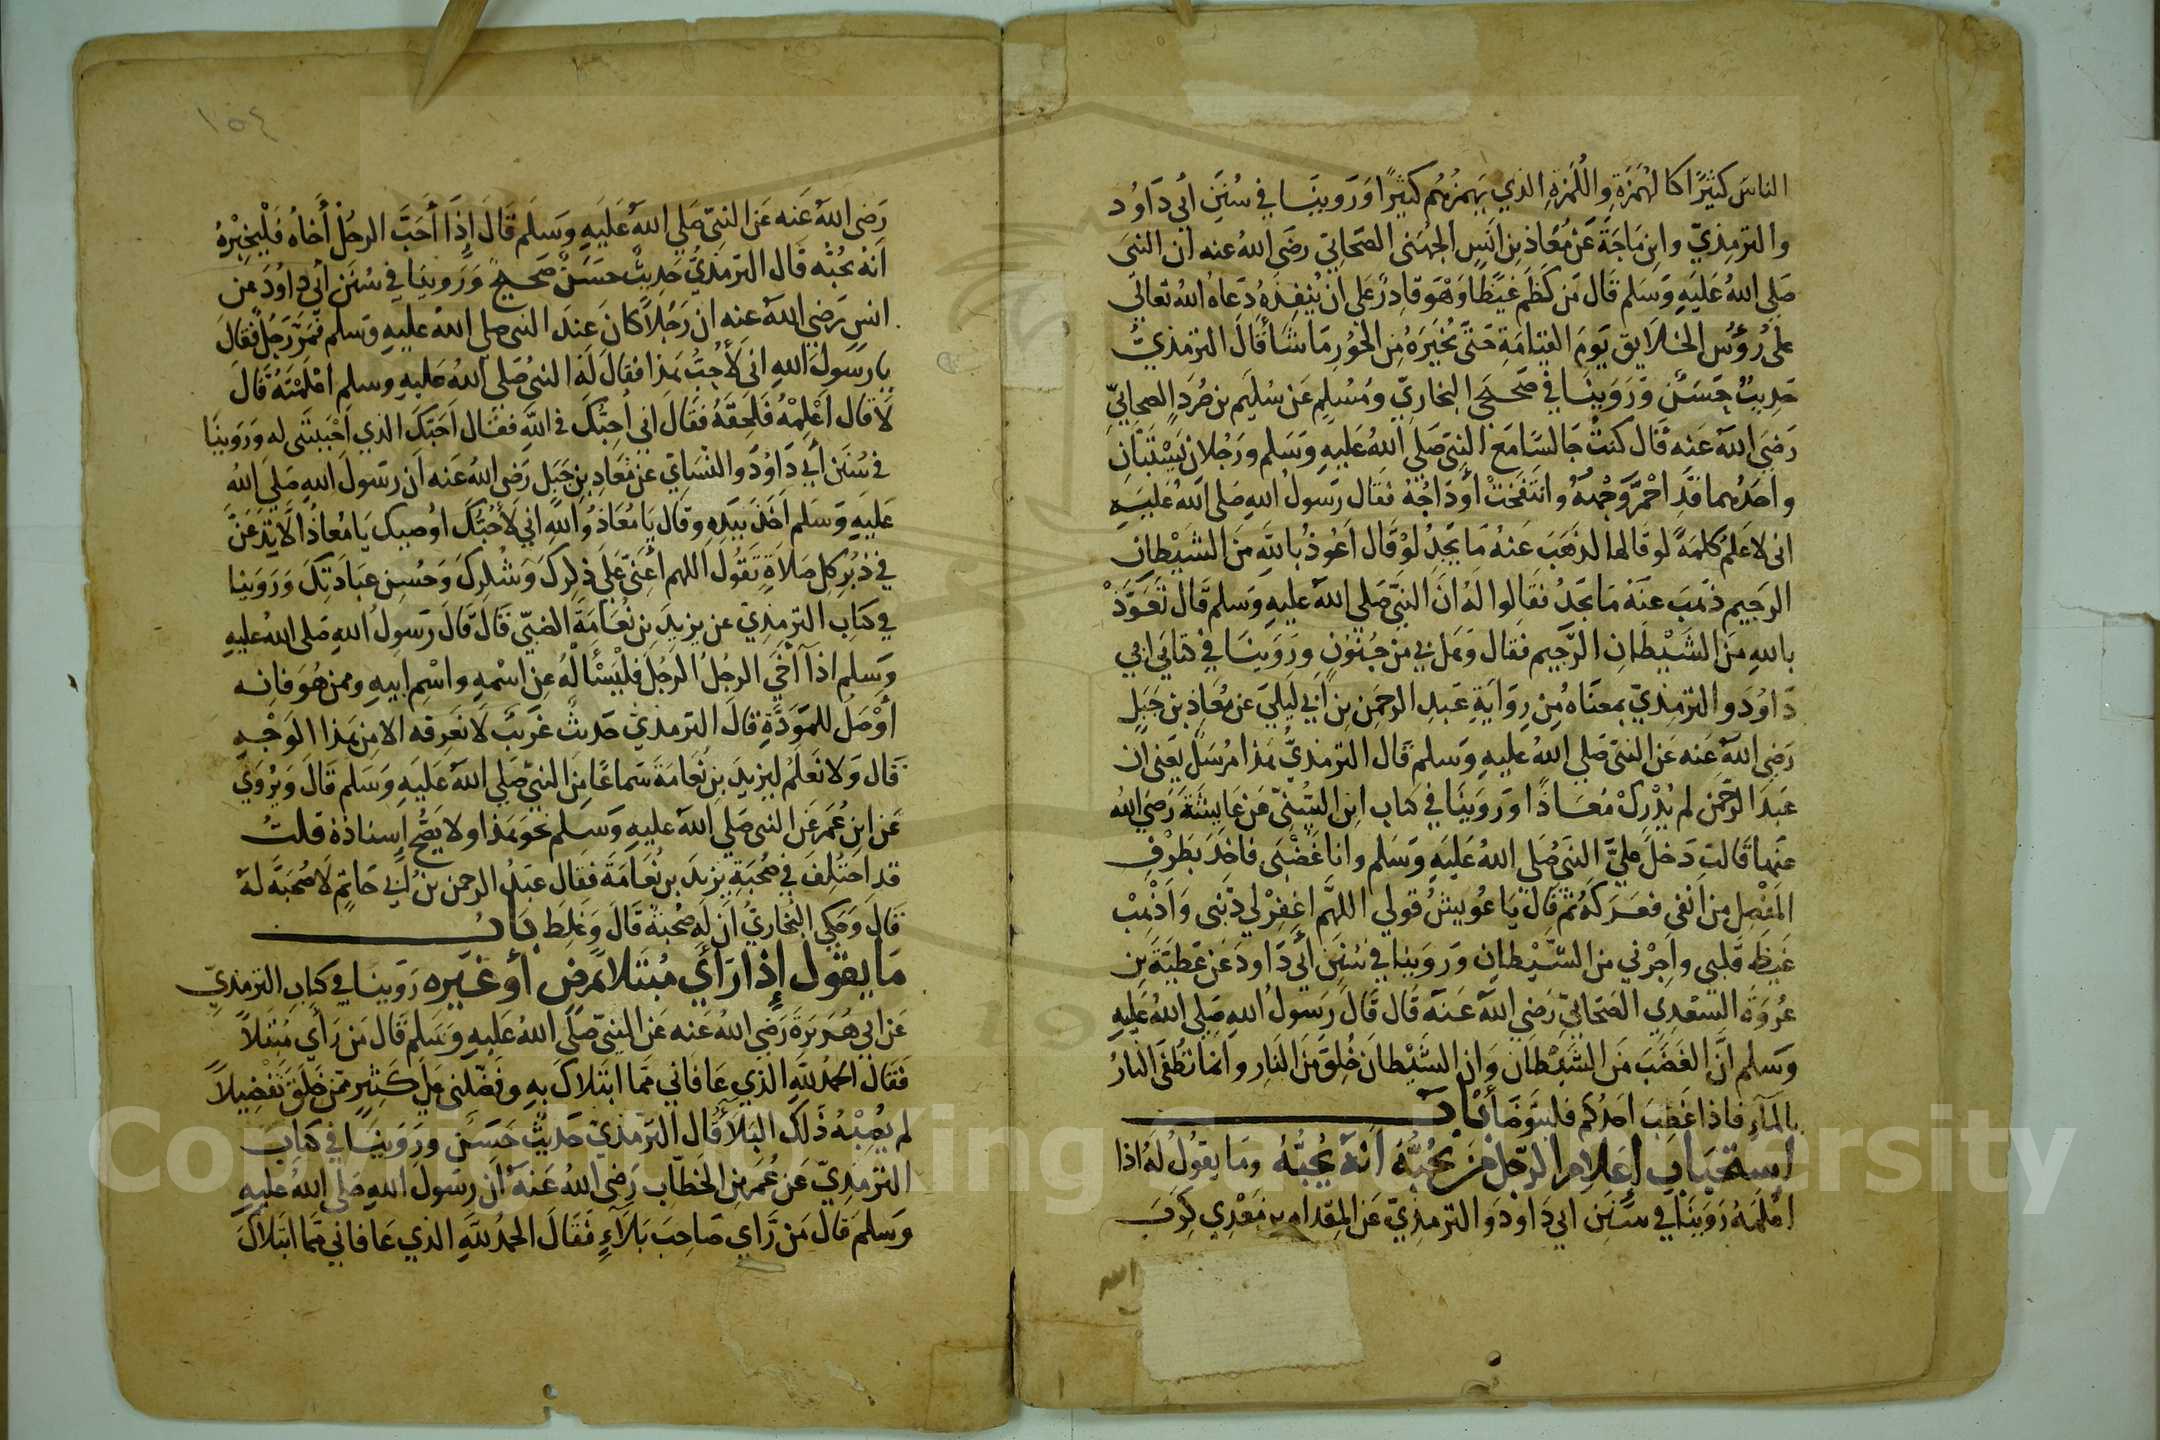 الناس كثيرًا كالهُمَزَةِ واللُّمَزَةِ الذي يهمزهُم كثيرًا وَرَوينَا في سُنَنِ أبي دَاوُد
والترمذيّ وابن مَاجَةَ عَن مُعَاذ بن اَنَسٍ الجُهَنى الصّحابيّ رضَى اللهُ عنه ان النبىَ
صَلى اللهُ عَليَهِ وَسَلم قَال مَن كَظَم غيظًا وَهْوَ قادرٌ عَلى ان يُنفِذَهُ دَعاهُ اللهُ تعَالي
علىَ رُؤُسِ الخلايق يَومَ القيَامَةِ حَتىَ يُخيَرَهُ مِنِ الحُورِ مَا شَا قَالَ الترمذيُّ
حَديثٌ حَسَنٌ وَرَوَينَا في صَحيح البخاريّ ومُسْلِم عَن سُليَم بن صُرَدٍ الصحابيّ
رَضىَ اللهُ عَنه قَال كنتُ جَالسًا مَع النبىّ صَلى اللهُ عَليهِ وَسَلم ورَجُلان يَسْتَبّانِ
واحَدُهما قدَ احْمَرَّ وَجْهُهُ وانتَفَخَتْ أوْدَاجُهُ فقَال رَسولُ اللهِ صَلى اللهُ عَليَه
انى لاعَلمُ كلمَةً لو قَالها لذهَبَ عَنهُ مَا يَجِدُ لوْ قَال اَعُوذُ بالله مِنَ الشَيْطان
الرجيم ذهَبَ عنَه مَا يَجدُ فقَالوا لهُ انَ النبىّ صَلى اللهُ عليهِ وَسلم قَال تَعَوّذْ
باللهِ مَنَ الشَيْطَانِ الرَّجيم فقال وَهَل بي من جُنُونٍ وَرَوَينَا في كتابَي ابي
دَاوُدَ والترمذيّ بمعنَاه مِن رِوَايَةِ عَبدِ الرحمَنِ بنِ اَبي لَيلىَ عَن مُعَاذِ بن جَبَلٍ
رَضى اللهُ عَنه عَن النبىّ صَلى اللهُ عليهِ وَسلم قَال الترمذيُّ هذا مُرسَلٌ يَعنى ان
عَبدَ الرَّحمَن لم يُدْرِكْ مُعَاذًا وَرَوينَا في كتاب ابن السُّنيّ عَن عَايشَةَ رَضىَ الله
عنها قَالت دَخلَ عَليَّ النبى صَلى اللهُ عَليَهِ وَسَلم وانا غضْبَى فاخَذَ بطرْفِ
المَفْصِل من انفى فعَرَكهُ ثم قَال يَا عُوَيشُ قولي اللهَّم اغفِرْ لي ذنْبى وَاَذْهِبْ
غَيظ قلبى واجرْني من الشّيْطان وَرَوَينَا في سُنَنِ أبي دَاودَ عَن عَطيَّةَ بن
عُروَةَ السّعْدِي الصَحَابيّ رَضي اللهُ عَنهَ قَال قَالَ رَسولُ اللهِ صَلى اللهُ عَليِه
وَسَلم انَّ الغَضَبَ منَ الشَيْطان وَانِ الشَّيْطانَ خُلِقَ مَنَ النَارِ وانمَا تُطفَى النارُ
بالمَآءِ فاذا غضبَ احَدُكم فليَتَوَضَأ بَابُ
اسْتحبَابِ إعْلامِ الرَجُل مَن يُحبُّهُ اَنهُ يُحبُّهُ ومَا يقوُلُ لهُ اذا
اعْلمَهُ رَوَينَا في سُنَنِ ابي دَاودَ والترمذيّ عَن المِقدَامِ بن مَعْدِي كَرِبَ
الله
١٥٤
رَضى اللهُ عَنه عَن النبىّ صَلى اللهُ عَليَهِ وسَلم قَالَ إذَا أحَبَّ الرجُلُ أخَاهُ فَلْيُخبِرْهُ
اَنهُ يحُبّهُ قَال الترمذيُّ حَديثٌ حسَنٌ صَحيحٌ وَرَوينَا في سُنَنِ أبي دَاوُدَ عَن
انسٍ رَضي اللهُ عنه ان رَجُلاً كانَ عندَ النبى صلى اللهُ عليهِ وَسلم فَمَرَّ رَجُلٌ فقَالَ
يا رَسولَ اللهِ انى لأحِبُّ هَذا فقالَ لهُ النبىُ صَلى اللهُ عليهِ وسلم اعْلَمْتَهُ قَالَ
لاَ قَال أعْلِمْهُ فَلَحِقَهُ فقَالَ انى أحِبُّكَ في اللهِ فقَال اَحَبّكَ الذي أحْبَبْتَنى له وَرَوينَا
في سُنَن أبي دَاوُدَ والنسَايّ عَن مُعَاذِ بن جَبَل رَضى اللهُ عَنه اَن رَسُولَ اللهِ صَلىَ اللهُ
عَليهِ وَسَلم اَخَذَ بيَدِهِ وقَال يَا مُعَاذُ واللهِ انى لأحِبُّكَ اوُصيك يَا مُعاذُ الاَ تدَعَنَّ
في دُبُرِ كل صَلاَةٍ تَقُولُ اللهم أعنّى عَلىَ ذِكرِكَ وَشُكرِكَ وَحُسنِ عبَادَتِكَ وَرَوَينا
في كتاب الترمذيّ عَن يزيدَ بن نُعَامَةَ الضبيّ قَالَ قَالَ رَسولُ اللهِ صَلى اللهُ عليهِ
وَسَلم اذا آخَى الرجُلُ الرجُلَ فلْيَسْألهُ عَنِ اسْمِهِ واسْمِ ابيهِ وممن هُوَ فانِه
أوْصَلُ للمَوَدَّةِ قَالَ الترمذيُّ حَديثٌ غريَبٌ لاَ نعَرِفه الا مِن هَذا الوَجْهِ
قَال وَلا نَعلَمُ ليَزيدَ بن نُعَامَةَ سَماعًا مِنَ النبىّ صَلى اللهُ عَليَهِ وَسَلم قَالَ وَيُروَى
عَن ابنِ عُمَر عَنِ النبى صَلي اللهُ عليهِ وَسَلم نحوَ هَذا ولا يَصُّح إسنادُهُ قلتُ
قد اختُلِفَ في صُحبَةِ يَزيدَ بن نُعَامَةَ فقَال عَبدُ الرحمن بنُ ابي حَاتمٍ لاَ صُحبَةَ لهُ
قَالَ وَحَكى البخاريُّ ان لَه صُحبَةً قَالَ وَغلِطَ بَابُ
مَا يَقوُلُ إذا رَأَى مُبتَلاً بمَرَضٍ أَو غيَرِه رَوَينَا في كتابِ الترمذيّ
عَن ابي هُرَيرَةَ رَضِي اللهُ عَنه عَن النبىّ صَلى اللهُ عَليهِ وَسَلم قَال مَن رَأى مُبتَلاً
فقَال الحمدُ للهِ الذي عَافَاني ممَّا ابتَلاكَ بهِ وفضّلنى عَلىَ كثيرٍ ممّن خَلقَ تَفْضيلاً
لم يُصِبْهُ ذَلكَ البَلاَءُ قَال الترمذيّ حَديثٌ حَسَنٌ وَرَوَينَا في كتابِ
الترمذيّ عَن عُمَر بن الخطّابِ رَضى اللهُ عَنهُ اَن رسَولَ اللهِ صَلى اللهُ عليهِ
وَسلمَ قَالَ مَن رَأى صَاحِبَ بَلآءٍ فقَالَ الحمدُ للهِ الذي عَافاني ممَّا ابتَلاَكَ